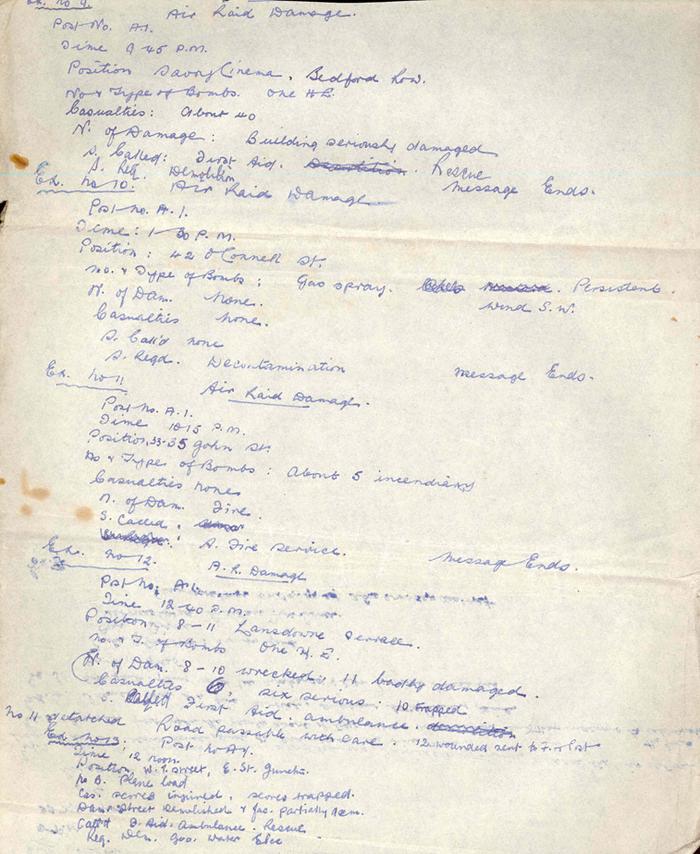 Ex. no 9. Air Raid Damage.
Post No. A.1.
Time 9 45 P.M.
Position Savoy Cinema, Bedford Row.
No & Type of Bombs. One H.E.
Casualties: About 40
N. of Damage: Building seriously damaged
S. Called: First Aid. Rescue
S. Req. Demolition Message Ends.
Ex. no 10. Air Raid Damage
Post No. A.1.
Time: 1 30 P.M.
Position: 42 O'Connell St.
No. & Type of Bombs: Gas spray. Persistent.
N. of Dam. None. Wind S.W.
Casualties None.
S. Call'd none
S. Reqd. Decontamination Message Ends.
Ex. no 11 Air Raid Damage.
Post No. A.1.
Time 10 15 P.M.
Position 33-35 John St.
No & Types of Bombs: About 5 incendiary
Casualties None
N. of Dam. Fire.
S. Called:
A. Fire Service. Message Ends.
Ex. no 12. A.R. Damage
Post No: A.1.
Time 12-40 P.M.
Position: 8-11 Lansdowne Terrace.
No. & T. of Bombs One H.E.
N. of Dam. 8-10 wrecked; 11 badly damaged.
Casualties 6, six serious: 10 trapped
S. First Aid. ambulance.
No 11 detached Road passable with care. 12 wounded sent to F. A Post
Ex. no 13. Post no A4.
Time 12 noon.
Position W. street, E. St. Junctn.
no B. Plane load
Cas. scores injured, scores trapped.
Dam. Street Demolished & gas. partially
Call'd F. Aid. Ambulance. Rescue
Req. Dem. Gas. Water Elec